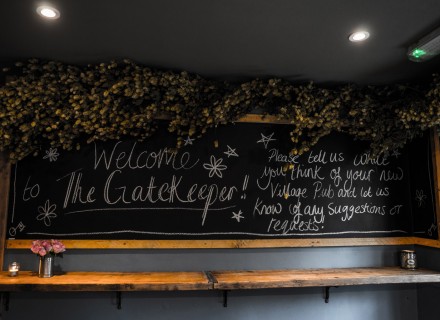 Welcome
to The GateKeeper!!
Please tell us what
you think of your new
Village Pub and let us
know of any suggestions or
requests!